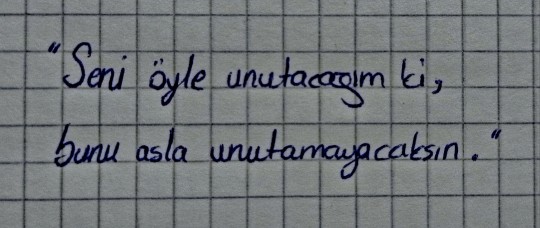 "Seni öyle unutacagım ki,
bunu asla unutamayacaksın."